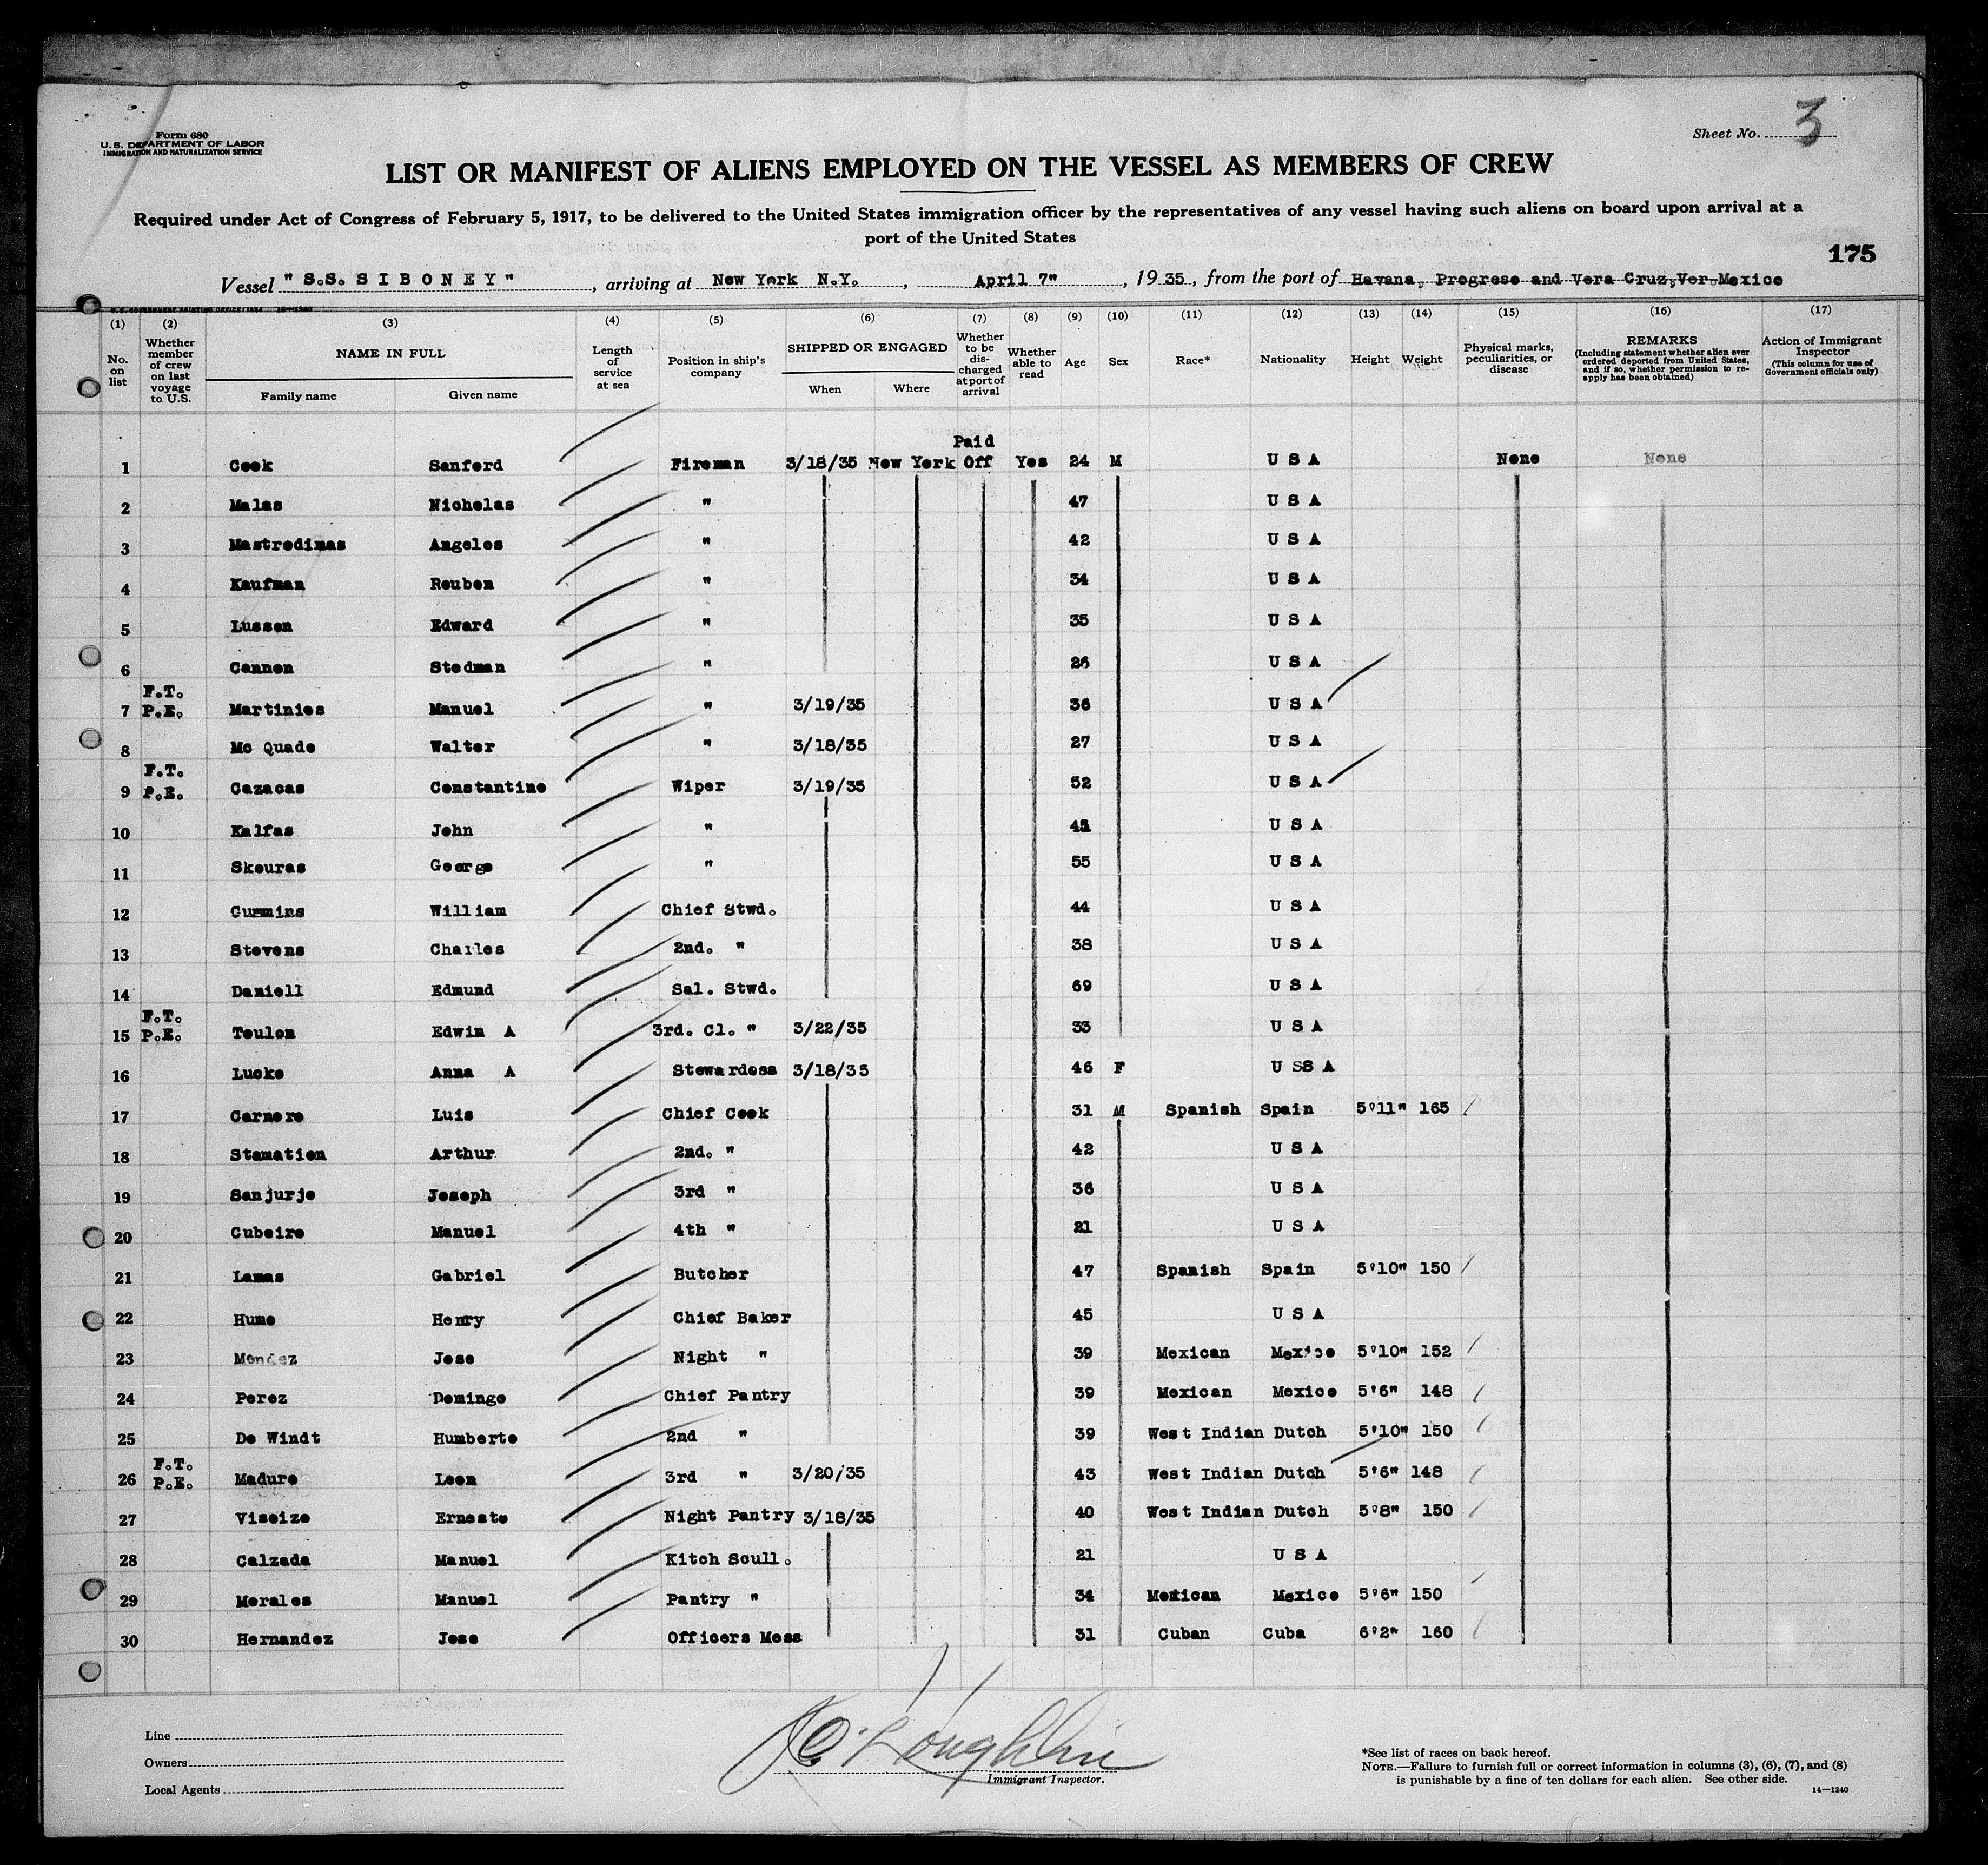 Form 680
U.S. DEPARTMENT OF LABOR
IMMIGRATION AND NATURALIZATION SERVICE
Sheet No. 3
LIST OR MANIFEST OF ALIENS EMPLOYED ON THE VESSEL AS MEMBERS OF CREW
Required under Act of Congress of February 5, 1917, to be delivered to the United States immigration officer by the representatives of any vessel having such aliens on board upon arrival at a
port of the United States
175
Vessel "S.S. SIBONEY", arriving at New York N.Y., April 7", 1935, from the port of Havana, Progreso and Vera Cruz, Ver. Mexico
(1) (2) (3) (4) (5) (6) (7) (8) (9) (10) (11) (12) (13) (14) (15) (16) (17)
No. on list
Whether member of crew on last voyage to U.S.
NAME IN FULL
Family name Given name
Length of service at sea
Position in ship's company
SHIPPED OR ENGAGED
When Where
Whether to be discharged at port of arrival
Whether able to read
Age
Sex
Race*
Nationality
Height
Weight
Physical marks, peculiarities, or disease
REMARKS
(Including statement whether alien ever ordered deported from United States, and if so, whether permission to re-apply has been obtained)
Action of Immigrant Inspector
(This column for use of Government officials only)
1 Cook Sanford Fireman 3/18/35 New York Paid Off Yes 24 M U S A None None
2 Malas Nicholas " 47 U S A
3 Mastrodimas Angelos " 42 U S A
4 Kaufman Reuben " 34 U S A
5 Lussen Edward " 35 U S A
6 Cannon Stedman " 26 U S A
7 F.T. P.E. Martinies Manuel " 3/19/35 36 U S A
8 Mc Quade Walter " 3/18/35 27 U S A
9 F.T. P.E. Cazacas Constantine Wiper 3/19/35 52 U S A
10 Kalfas John " 45 U S A
11 Skouras George " 55 U S A
12 Cummins William Chief Stwd. 44 U S A
13 Stevens Charles 2nd. " 38 U S A
14 Daniell Edmund Sal. Stwd. 69 U S A
15 F.T. P.E. Toulon Edwin A 3rd. Cl. " 3/22/35 33 U S A
16 Lucke Anna A Stewardess 3/18/35 46 F U SS A
17 Carnero Luis Chief Cook 31 M Spanish Spain 5'11" 165
18 Stamation Arthur 2nd. " 42 U S A
19 Sanjurjo Joseph 3rd " 36 U S A
20 Cubeiro Manuel 4th " 21 U S A
21 Lamas Gabriel Butcher 47 Spanish Spain 5'10" 150
22 Hume Henry Chief Baker 45 U S A
23 Mendez Jose Night " 39 Mexican Mexico 5'10" 152
24 Perez Domingo Chief Pantry 39 Mexican Mexico 5'6" 148
25 De Windt Humberto 2nd " 39 West Indian Dutch 5'10" 150
26 F.T. P.E. Maduro Leon 3rd " 3/20/35 43 West Indian Dutch 5'6" 148
27 Viseize Ernesto Night Pantry 3/18/35 40 West Indian Dutch 5'8" 150
28 Calzada Manuel Kitch Scull. 21 U S A
29 Morales Manuel Pantry " 34 Mexican Mexico 5'6" 150
30 Hernandez Jose Officers Mess 31 Cuban Cuba 6'2" 160
Line
Owners
Local Agents
O'Loughlin
Immigrant Inspector.
*See list of races on back hereof.
NOTE.—Failure to furnish full or correct information in columns (3), (6), (7), and (8)
is punishable by a fine of ten dollars for each alien. See other side.
14—1240